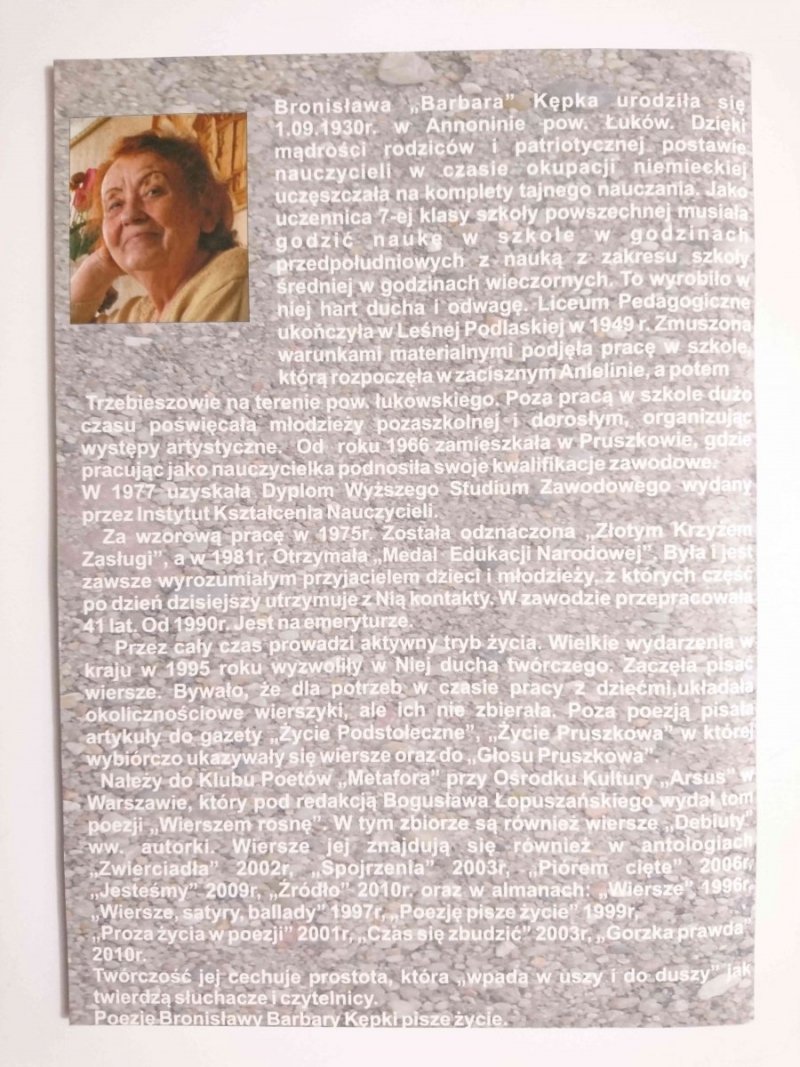 Bronisława „Barbara” Kępka urodziła się
1.09.1930r. w Annoninie pow. Łuków. Dzięki
mądrości rodziców i patriotycznej postawie
nauczycieli w czasie okupacji niemieckiej
uczęszczała na komplety tajnego nauczania. Jako
uczennica 7-ej klasy szkoły powszechnej musiała
godzić naukę w szkole w godzinach
przedpołudniowych z nauką z zakresu szkoły
średniej w godzinach wieczornych. To wyrobiło w
niej hart ducha i odwagę. Liceum Pedagogiczne
ukończyła w Leśnej Podlaskiej w 1949 r. Zmuszona
warunkami materialnymi podjęła pracę w szkole,
którą rozpoczęła w zacisznym Anielinie, a potem
Trzebieszowie na terenie pow. łukowskiego. Poza pracą w szkole dużo
czasu poświęcała młodzieży pozaszkolnej i dorosłym, organizując
występy artystyczne. Od roku 1966 zamieszkała w Pruszkowie, gdzie
pracując jako nauczycielka podnosiła swoje kwalifikacje zawodowe.
W 1977 uzyskała Dyplom Wyższego Studium Zawodowego wydany
przez Instytut Kształcenia Nauczycieli.
Za wzorową pracę w 1975r. Została odznaczona „Złotym Krzyżem
Zasługi”, a w 1981r. Otrzymała „Medal Edukacji Narodowej”. Była i jest
zawsze wyrozumiałym przyjacielem dzieci i młodzieży, z których część
po dzień dzisiejszy utrzymuje z Nią kontakty. W zawodzie przepracowała
41 lat. Od 1990r. Jest na emeryturze.
Przez cały czas prowadzi aktywny tryb życia. Wielkie wydarzenia w
kraju w 1995 roku wyzwoliły w Niej ducha twórczego. Zaczęła pisać
wiersze. Bywało, że dla potrzeb w czasie pracy z dziećmi,układała
okolicznościowe wierszyki, ale ich nie zbierała. Poza poezją pisała
artykuły do gazety „Życie Podstoleczne”, „Życie Pruszkowa” w której
wybiórczo ukazywały się wiersze oraz do „Głosu Pruszkowa”.
Należy do Klubu Poetów „Metafora” przy Ośrodku Kultury „Arsus” w
Warszawie, który pod redakcją Bogusława Łopuszańskiego wydał tom
poezji „Wierszem rosnę”. W tym zbiorze są również wiersze „Debiuty”
ww. autorki. Wiersze jej znajdują się również w antologiach
„Zwierciadła” 2002r, „Spojrzenia” 2003r, „Piórem cięte” 2006r,
„Jesteśmy” 2009r, „Źródło” 2010r, oraz w almanach: „Wiersze” 1996r,
„Wiersze, satyry, ballady” 1997r, „Poezję pisze życie” 1999r,
„Proza życia w poezji” 2001r, „Czas się zbudzić” 2003r, „Gorzka prawda”
2010r.
Twórczość jej cechuje prostota, która „wpada w uszy i do duszy” jak
twierdzą słuchacze i czytelnicy.
Poezję Bronisławy Barbary Kępki pisze życie.